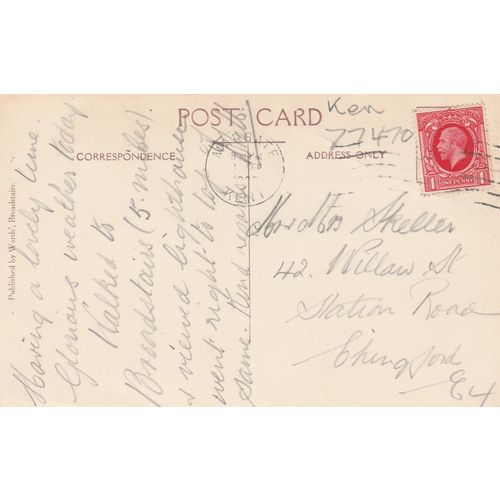 POST CARD
CORRESPONDENCE
ADDRESS ONLY
Ken
77410
MARGATE
KENT
ONE PENNY
1 1
Published by Wards', Broadstairs.
Having a lovely time.
Glorious weather today.
Walked to
Broadstairs (5 miles).
& viewed lighthouse
went right to top of
same. Kind regards
Skeller
42. Willow St
Station Road
Chingford
E4